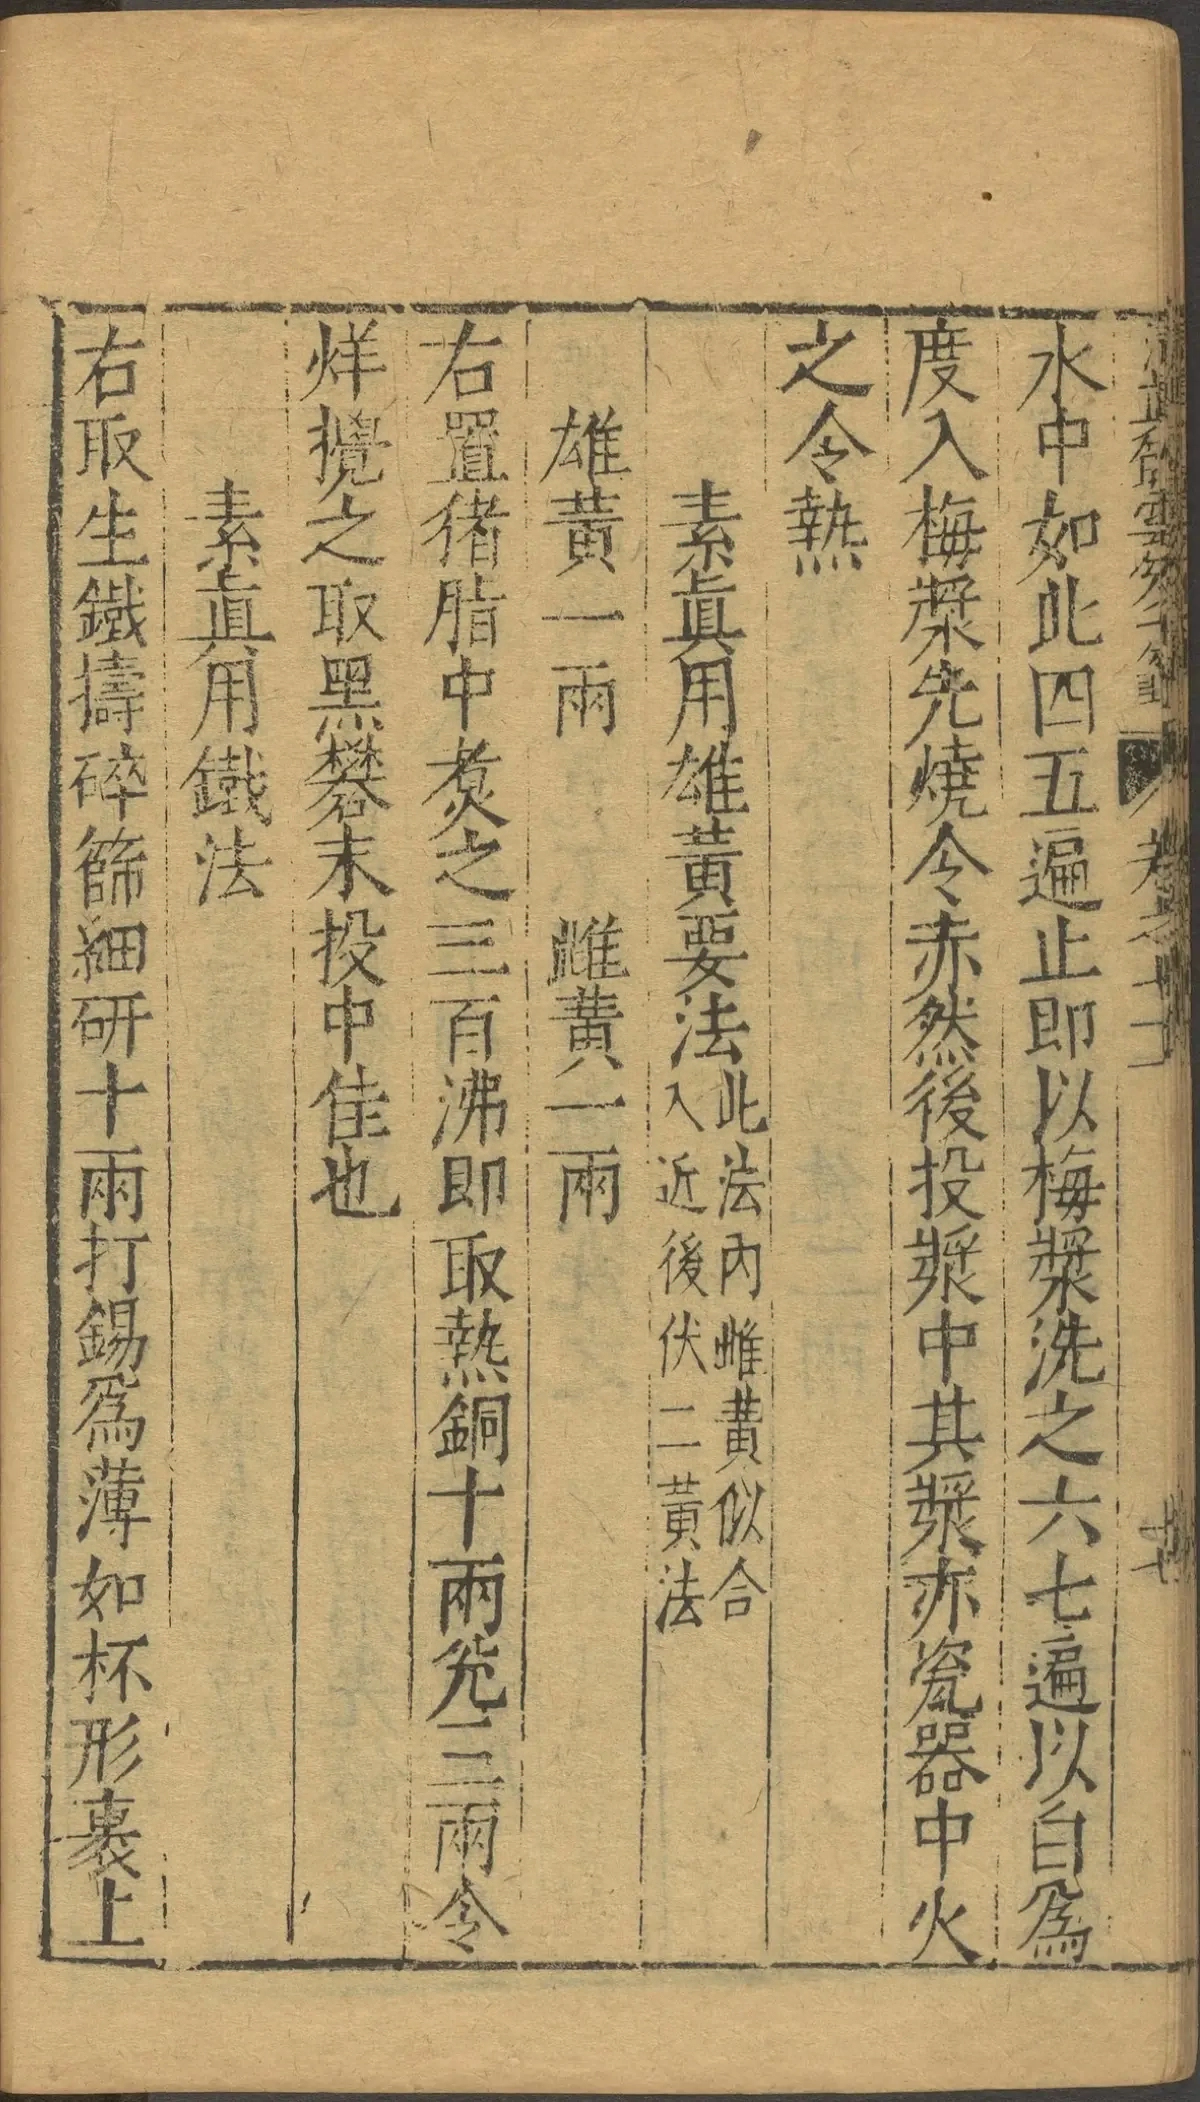 卷之七十一
水中如此四五遍止即以梅漿洗之六七遍以白爲
度入梅漿先燒令赤然後投漿中其漿亦瓷器中火
之令熱
素眞用雄黃要法此法內雌黃似合
入近後伏二黃法
雄黃一兩 雌黃一兩
右置猪脂中煮之三百沸即取熱銅十兩㷊三兩令
烊攪之取黑礬末投中佳也
素眞用鐵法
右取生鐵擣碎篩細研十兩打錫爲薄如杯形裹上